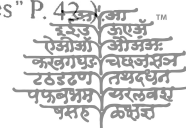 es" P. 42.)
अ आ ™
इईउ ऊएऍ
ऐओऔ औअंअः
कखगघङ चछजझञ
टठडढण तथदधन
पफबभम यरलवश
षसह ळक्षज्ञ